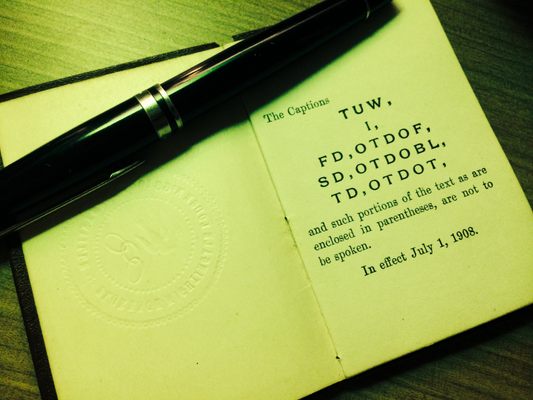 The Captions
TUW,
I,
FD,OTDOF,
SD,OTDOBL,
TD,OTDOT,
and such portions of the text as are
enclosed in parentheses, are not to
be spoken.
In effect July 1, 1908.